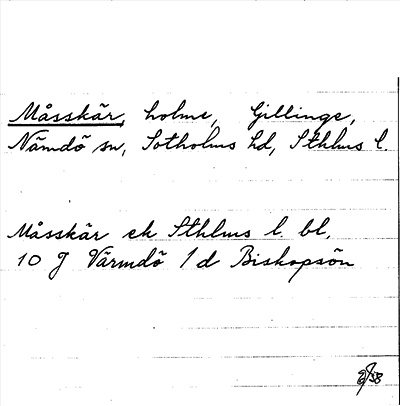 Måsskär, holme, Gillinge,
Nämdö sn, Sotholms hd, Sthlms l.
Måsskär ek Sthlms l. bl.
10 J Värmdö 1 d Biskopsön